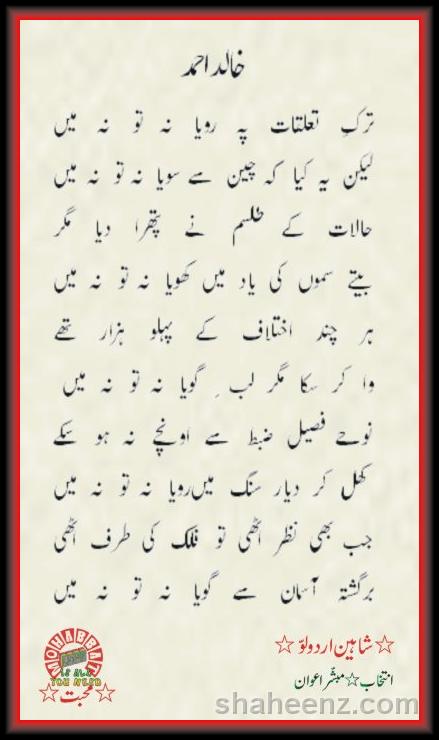 خالد احمد
ترکِ تعلقات پہ رویا نہ تو نہ میں
لیکن یہ کیا کہ چین سے سویا نہ تو نہ میں
حالات کے طلسم نے پتھرا دیا مگر
بیتے سموں کی یاد میں کھویا نہ تو نہ میں
ہر چند اختلاف کے پہلو ہزار تھے
وا کر سکا مگر لب گویا نہ تو نہ میں
نوحے فصیل ضبط سے اونچے نہ ہو سکے
کھل کر دیار سنگ میں رویا نہ تو نہ میں
جب بھی نظر اٹھی تو فلک کی طرف اٹھی
برگشتہ آسمان سے گویا نہ تو نہ میں
☆ شاہین اردو لوّ ☆
انتخاب ☆ مبشّر اعوان
MOHABBAT
IS ALL
YOU NEED
☆ محبت ☆
shaheenz.com